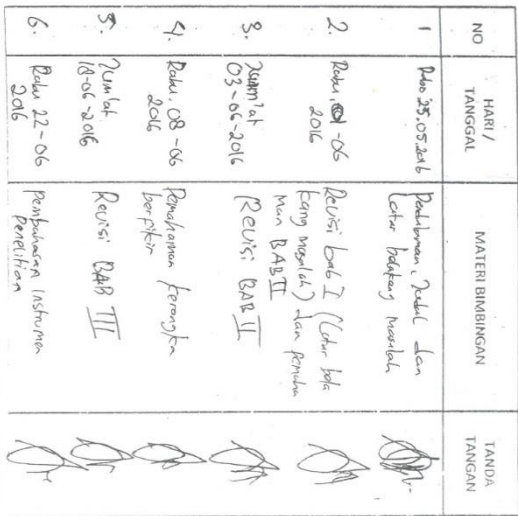 NO
HARI / TANGGAL
MATERI BIMBINGAN
TANDA TANGAN
1
Rabu 25.05.2016
Pendahuluan, Judul dan
Latar belakang masalah
2.
Rabu, 01-06
2016
Revisi bab I (Latar bela
kang masalah) dan pemaha
man BAB II
3.
Jumm'at
03-06-2016
Revisi BAB II
4.
Rabu, 08-06
2016
Pemahaman kerangka
berfikir
5.
Jum'at
18-06-2016
Revisi BAB III
6.
Rabu 22-06
2016
Pembuatan Instrumen
Penelitian